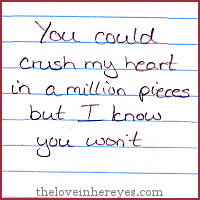 You could
crush my heart
in a million pieces
but I know
you won't
theloveinhereyes.com